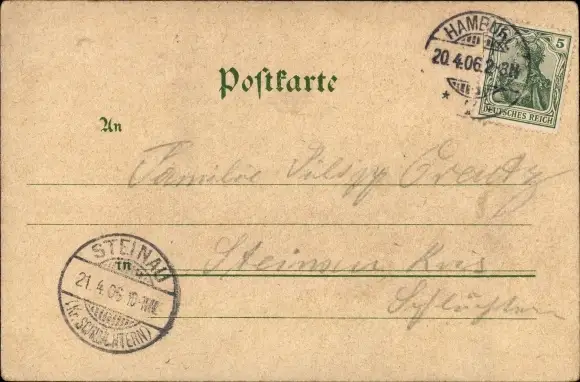 HAMBUR
20.4.06.2-3N
5
DEUTSCHES REICH
Postkarte
An
Familie Philipp Creutz
STEINAU
in
21.4.06 10-11V.
(Kr. SCHLÜCHTERN)
Steinau Kreis
Schlüchtern